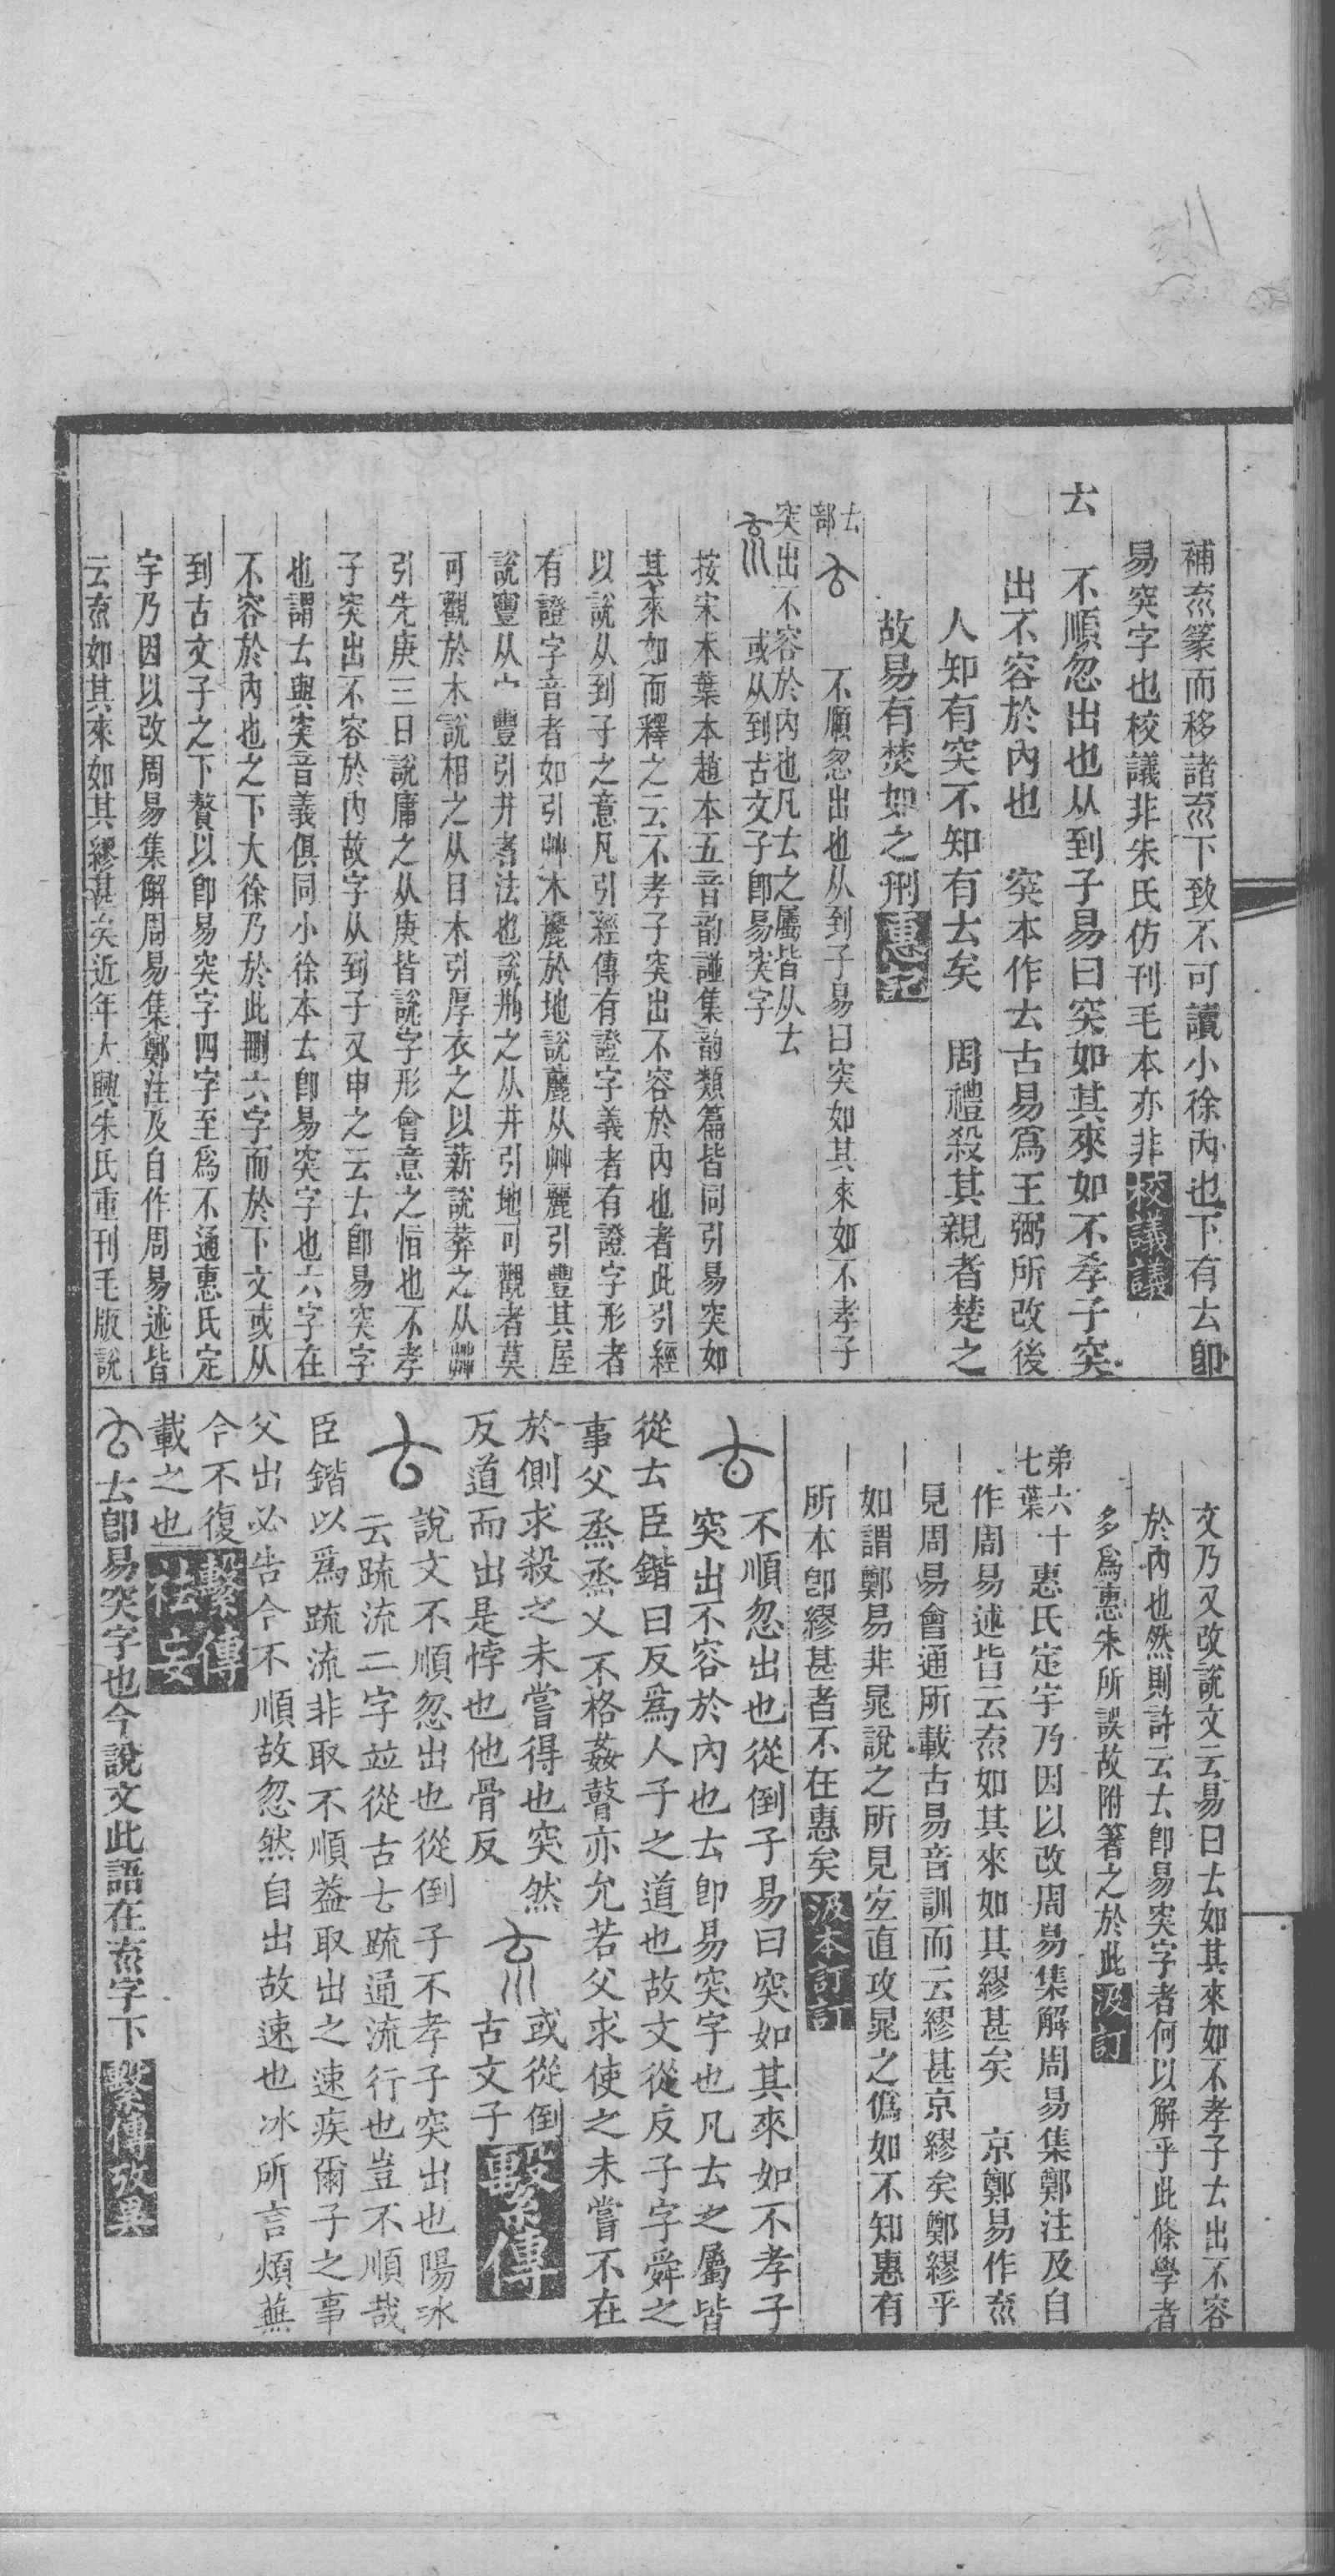 補𡿮篆而移諸𡿮下致不可讀小徐內也下有𠫓卽
易突字也校議非朱氏仿刊毛本亦非校議議
𠫓　不順忽出也从到子易曰突如其來如不孝子突
出不容於內也　突本作𠫓古易爲王弼所改後
人知有突不知有𠫓矣　周禮殺其親者焚之
故易有焚如之刑惠記
𠫓部
𠫓　不順忽出也从到子易曰突如其來如不孝子
突出不容於內也凡𠫓之屬皆从𠫓
㐬　或从到古文子卽易突字
按宋本葉本趙本五音韵譜集韵類篇皆同引易突如
其來如而釋之云不孝子突出不容於內也者此引經
以說从到子之意凡引經傳有證字義者有證字形者
有證字音者如引艸木麗於地說䕻从艸麗引豐其屋
說寷从宀豐引井者法也說㓝之从井引地可觀者莫
可觀於木說相之从目木引厚衣之以薪說葬之从茻
引先庚三日說庸之从庚皆說字形會意之恉也不孝
子突出不容於內故字从到子又申之云𠫓卽易突字
也謂𠫓與突音義俱同小徐本𠫓卽易突字也六字在
不容於內也之下大徐乃於此刪六字而於下文或从
到古文子之下贅以卽易突字四字至爲不通惠氏定
宇乃因以改周易集解周易集鄭注及自作周易述皆
云㐬如其來如其繆甚矣近年大興朱氏重刊毛版說
文乃又改說文云易曰𠫓如其來如不孝子𠫓出不容
於內也然則許云𠫓卽易突字者何以解乎此條學者
多爲惠朱所誤故附箸之於此汲訂
弟六十七葉惠氏定宇乃因以改周易集解周易集鄭注及自
作周易述皆云㐬如其來如其繆甚矣　京鄭易作㐬
見周易會通所載古易音訓而云繆甚京繆矣鄭繆乎
如謂鄭易非晁說之所見宐直攻晁之僞如不知惠有
所本卽繆甚者不在惠矣汲本訂訂
𠫓　不順忽出也從倒子易曰突如其來如不孝子
突出不容於內也𠫓卽易突字也凡𠫓之屬皆
從𠫓臣鍇曰反爲人子之道也故文從反子字舜之
事父烝烝乂不格姦瞽亦允若父求使之未嘗不在
於側求殺之未嘗得也突然
反道而出是悖也他骨反
㐬　或從倒
古文子繫傳
𠫓　說文不順忽出也從倒子不孝子突出也陽冰
云疏流二字並從古𠫓疏通流行也豈不順哉
臣鍇以爲疏流非取不順葢取出之速疾爾子之事
父出必告今不順故忽然自出故速也冰所言煩蕪
今不復
載之也繫傳祛妄
𠫓　𠫓卽易突字也今說文此語在㐬字下繫傳攷異